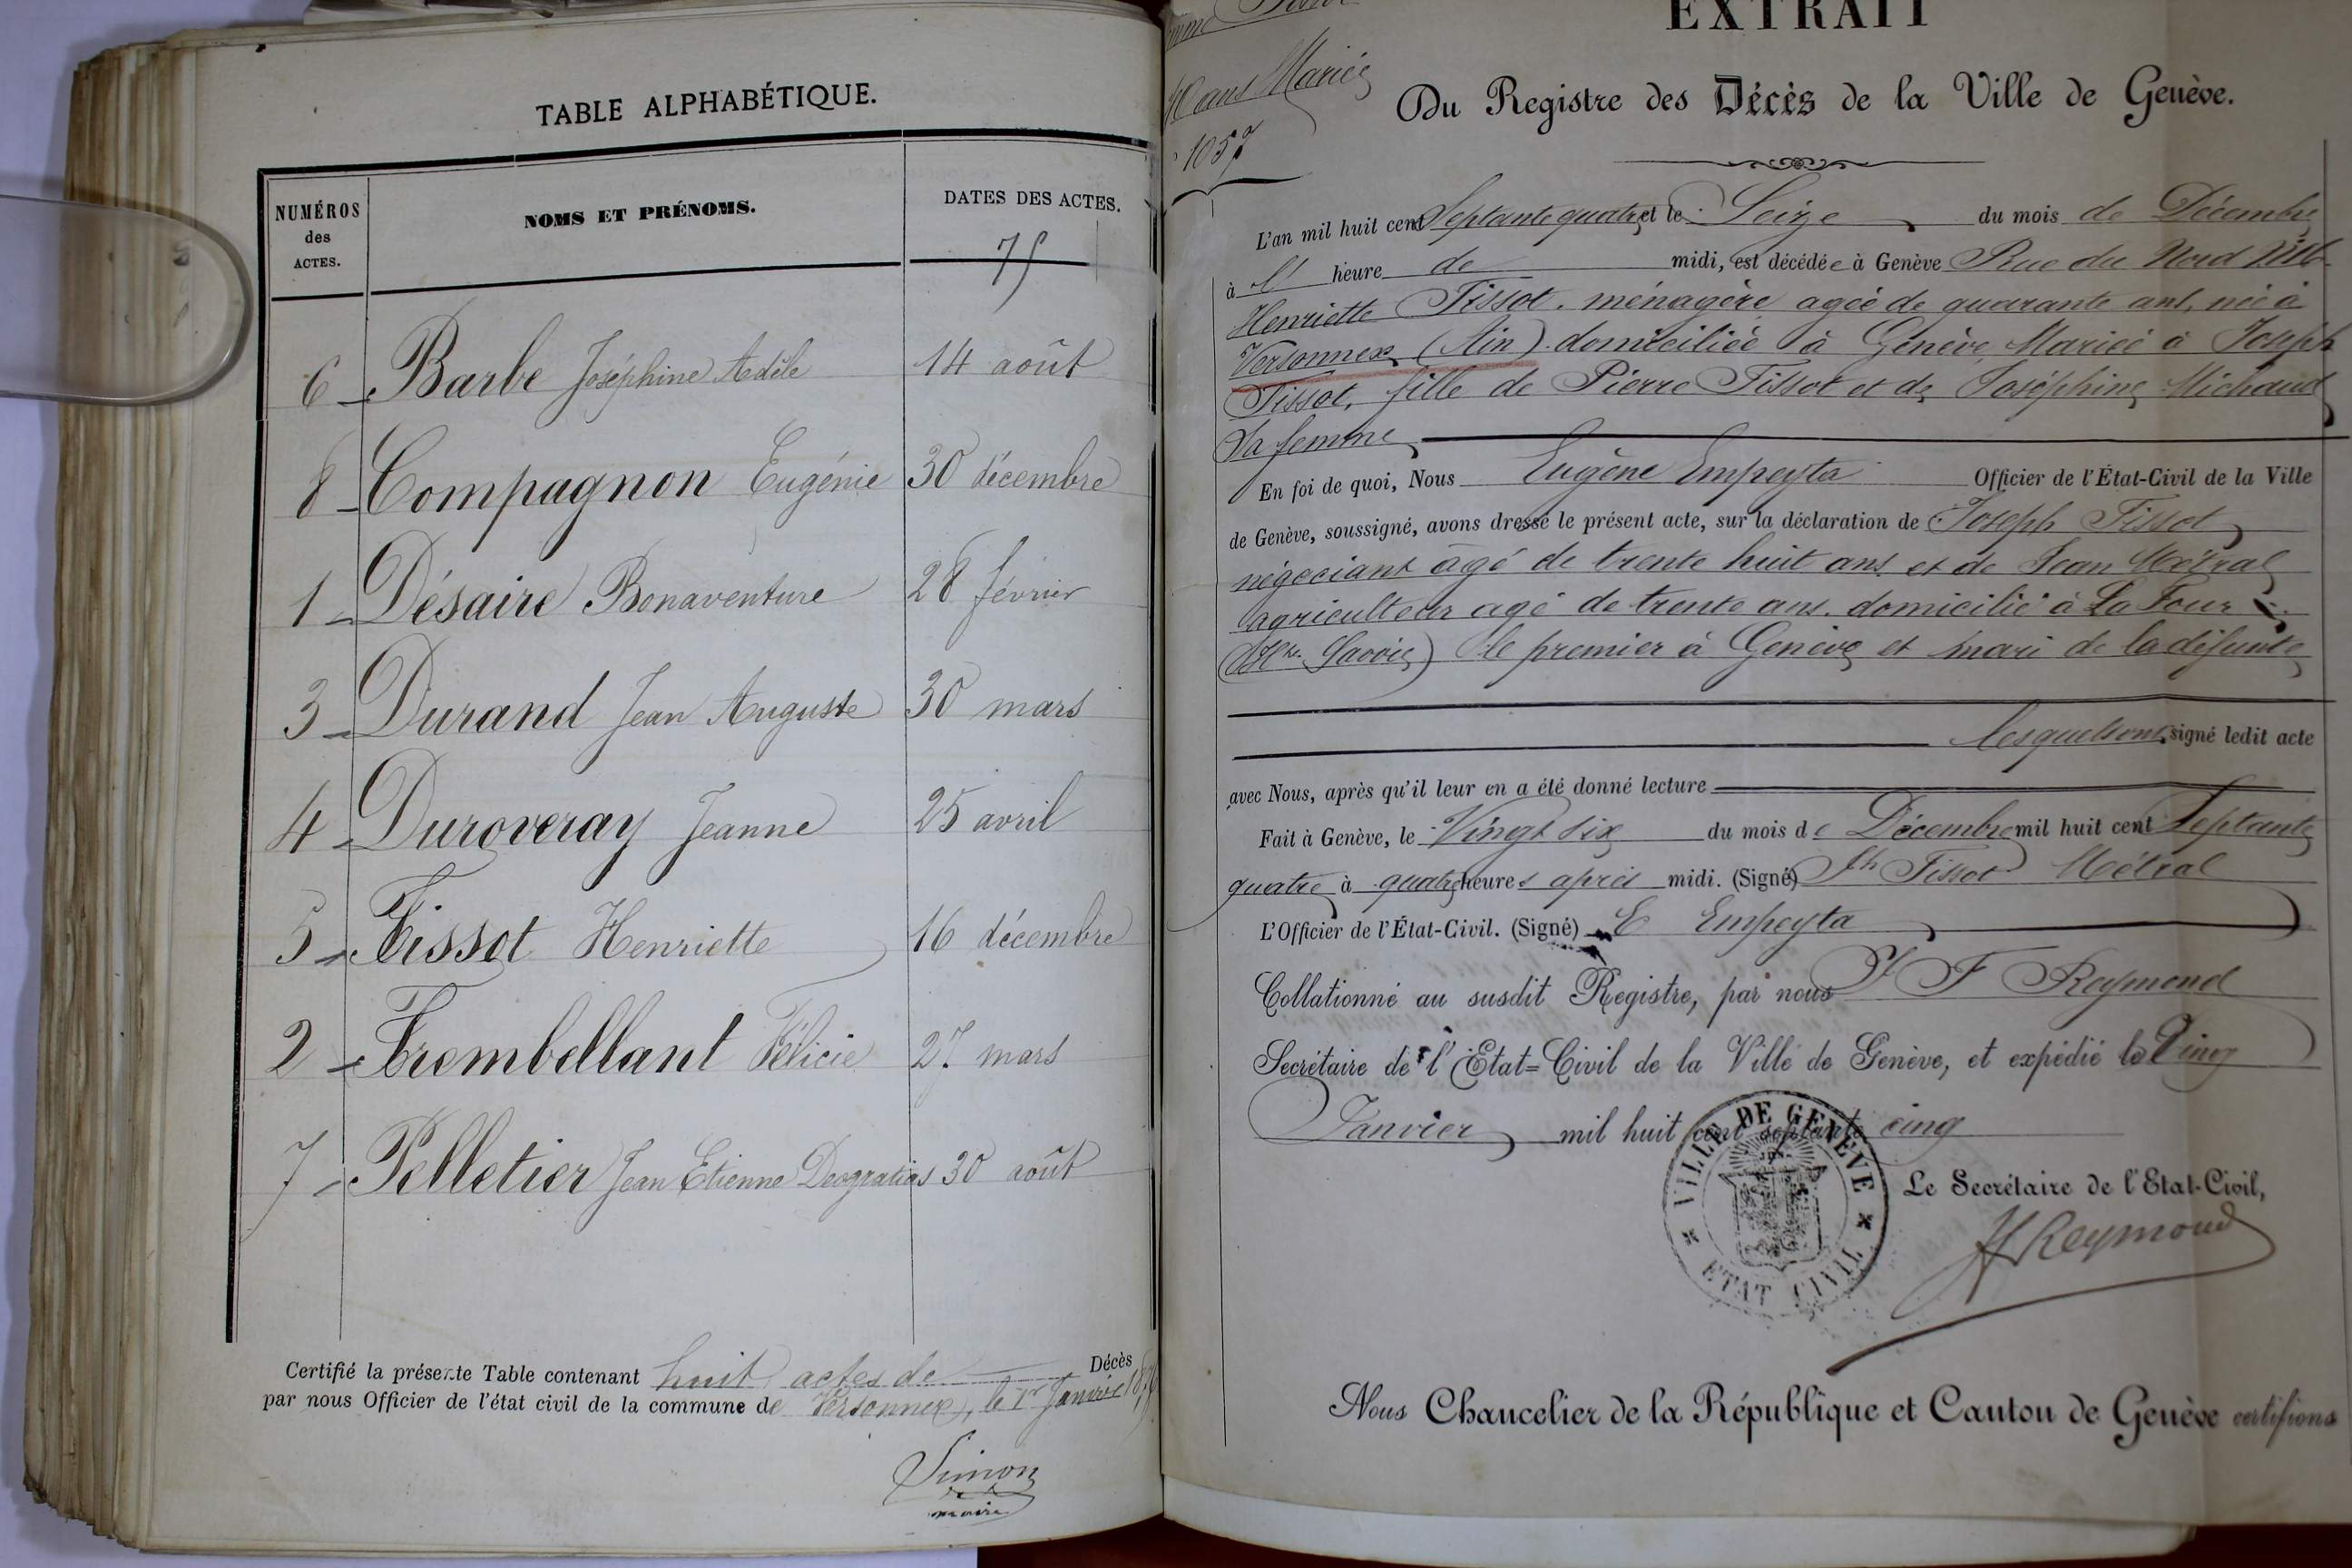 TABLE ALPHABÉTIQUE.
NUMÉROS des ACTES.
NOMS ET PRÉNOMS.
DATES DES ACTES.
75
6 Barbe Joséphine Adèle 14 août
8 Compagnon Eugénie 30 décembre
1 Désaire Bonaventure 28 février
3 Durand Jean Auguste 30 mars
4 Duroveray Jeanne 25 avril
5 Tissot Henriette 16 décembre
2 Trembellant Félicie 27 mars
7 Pelletier Jean Etienne Deogratias 30 août
Certifié la présente Table contenant huit actes de Décès
par nous Officier de l'état civil de la commune de Versonnex, le 1er Janvier
Simon
maire
40 ans Mariée
1057
EXTRAIT
Du Registre des Décès de la Ville de Genève.
L'an mil huit cent Septante quatre et le Seize du mois de Décembre
à 1 heure de midi, est décédée à Genève Rue du Nord
Henriette Tissot. ménagère agée de quarante ans, née à
Versonnex (Ain) domiciliée à Genève Mariée à Joseph
Tissot, fille de Pierre Tissot et de Joséphine Michaud
Sa femme
En foi de quoi, Nous Eugène Empeyta Officier de l'État-Civil de la Ville
de Genève, soussigné, avons dressé le présent acte, sur la déclaration de Joseph Tissot
négociant âgé de trente huit ans et de Jean Métral
agriculteur agé de trente ans. domicilié à La Tour
(Hte. Savoie) le premier à Genève et mari de la défunte
lesquels ont signé ledit acte
avec Nous, après qu'il leur en a été donné lecture
Fait à Genève, le Vingt six du mois de Décembre mil huit cent Septante
quatre à quatre heures après midi. (Signé) Jh Tissot Métral
L'Officier de l'État-Civil. (Signé) E Empeyta
Collationné au susdit Registre, par nous J F Reymond
Secrétaire de l'Etat=Civil de la Ville de Genève, et expédié le Cinq
Janvier mil huit cent septante cinq
VILLE DE GENÈVE
ETAT CIVIL
Le Secrétaire de l'Etat-Civil,
JF Reymond
Nous Chancelier de la République et Canton de Genève certifions